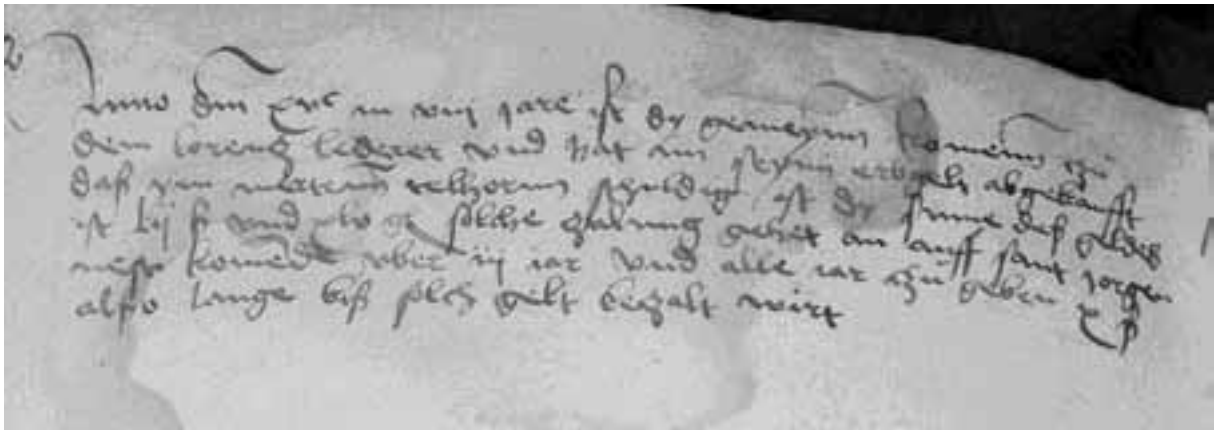 Anno dm xvc in viij jare ist dy gemeynn komenn czu
dem lorentz lederer vnd hat im seynn erbgelt abgekaufft
daß ym mertenn schuldig ist dy sume deß geldes
ist lij ß vnd xlv gr solche czalung gehet an auff sant jorgen
nest komende vber iij iar vnd alle iar czu geben x ß
alßo lange biß solch gelt beczalt wirt